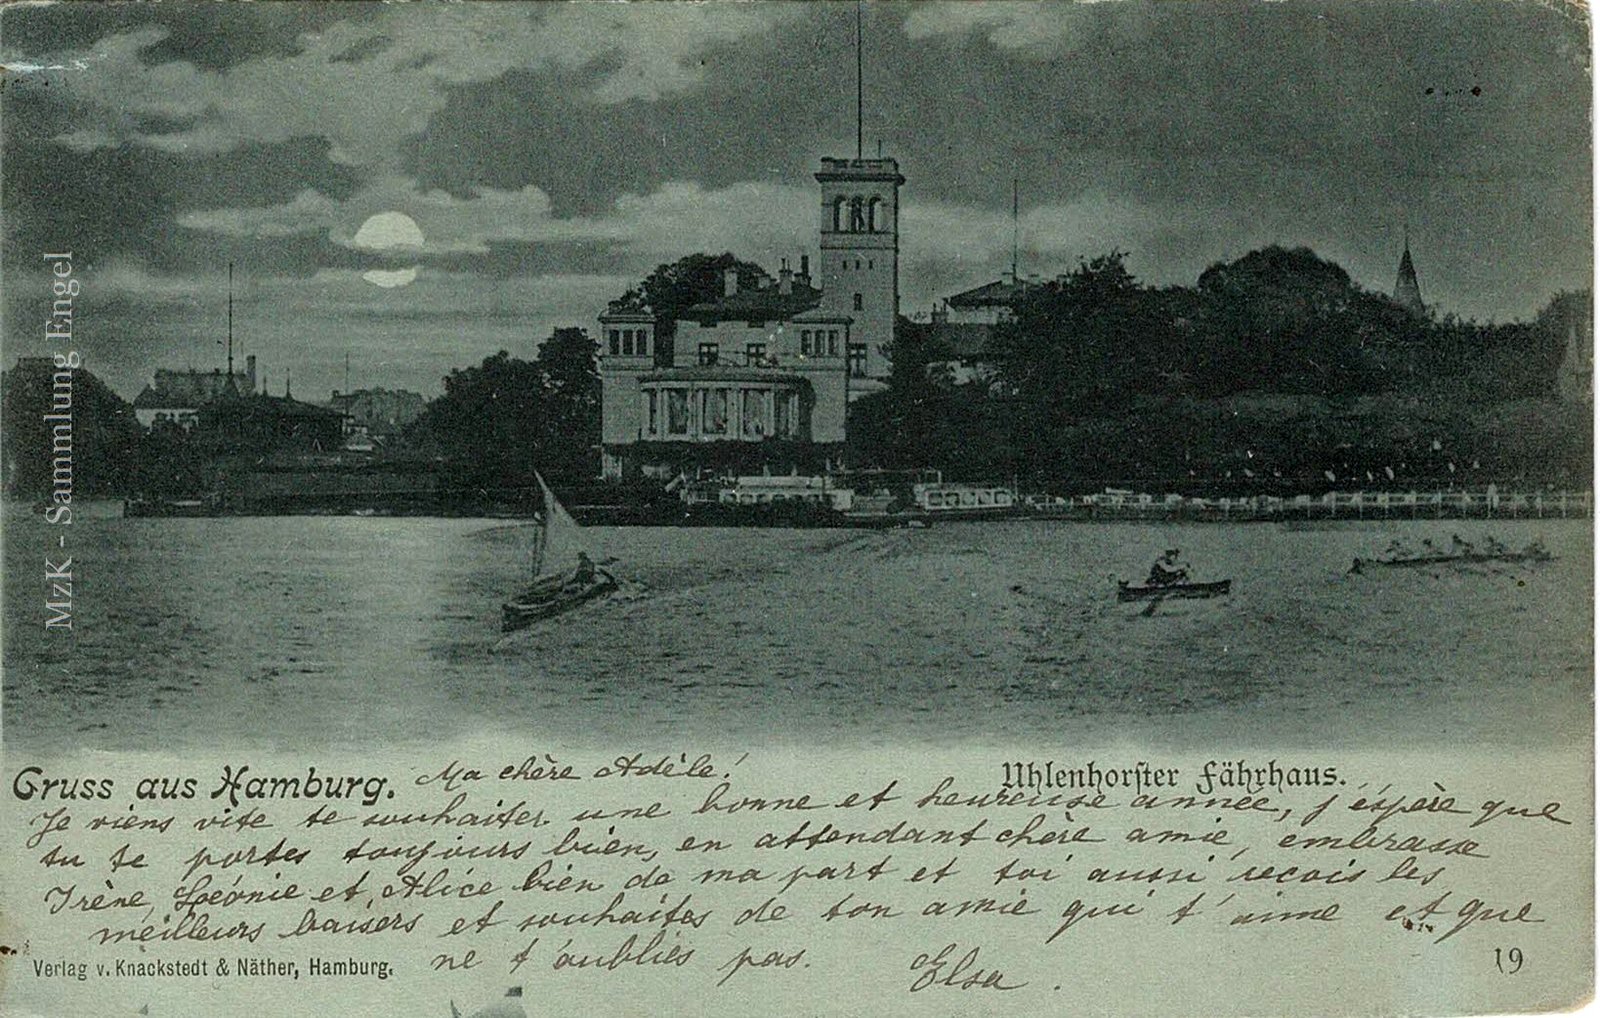 MzK - Sammlung Engel
Gruss aus Hamburg.
Uhlenhorster Fährhaus.
Ma chère Adèle!
Je viens vite te souhaiter une bonne et heureuse année, j'éspère que
tu te portes toujours bien, en attendant chère amie, embrasse
Irène, Léonie et Alice bien de ma part et toi aussi reçois les
meilleurs baisers et souhaites de ton amie qui t'aime et que
ne t'oubliés pas.
Elsa.
Verlag v. Knackstedt & Näther, Hamburg.
19